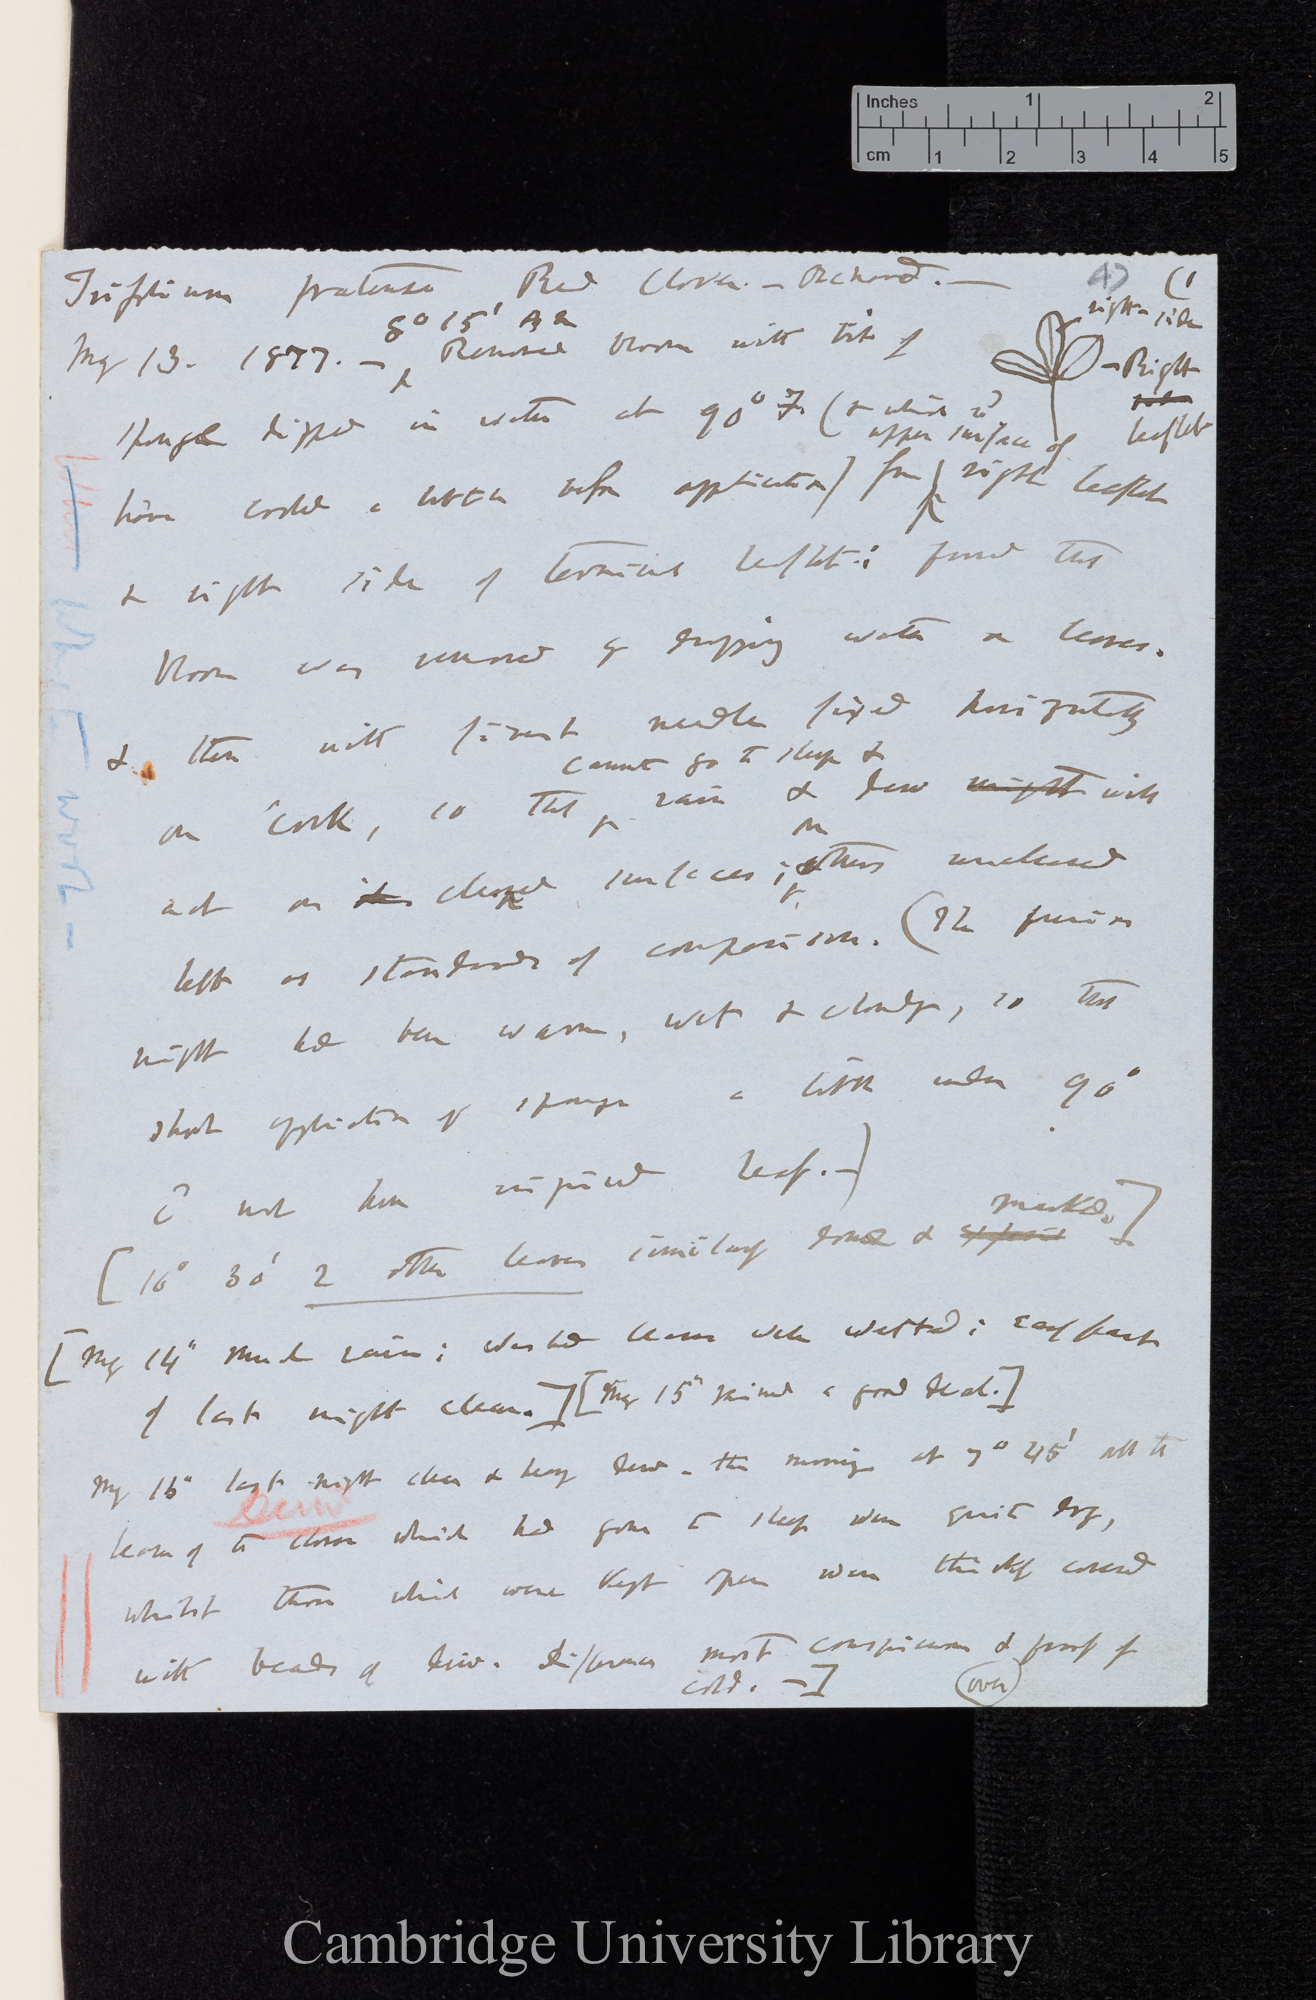 Inches 1 2
cm 1 2 3 4 5
Trifolium pratense Red Clover. — Orchard. — (1
right side
Right
leaflet
8° 15' Am
May 13. 1877. — Removed bloom with bit of
sponge dipped in water at 90° F (& which wd
upper surface of
have cooled a little before application) from right leaflet
& right side of terminal leaflet: proved that
bloom was removed by dripping water on leaves.
& then with finest needle fixed horizontally
cannot go to sleep &
on cork, so that rain & dew might will
on
act on the cleaned surfaces; others uncleaned
left as standards of comparison. (The previous
night had been warm, wet & cloudy, so that
short application of sponge a little under 90°
cd not have injured leaf. —)
marked.]
[10° 30' 2 other leaves similarly done &
[May 14" Much rain; washed leaves well wetted; early part
of last night clear.] [May 15" rained a good deal.]
May 16" last night clear & heavy dew – this morning at 7° 45' all the
Dew
leaves of the clover which had gone to sleep were quite dry,
whilst those which were kept open were thickly covered
with beads of dew. difference most conspicuous & proof of
cold. —]
over
Cambridge University Library